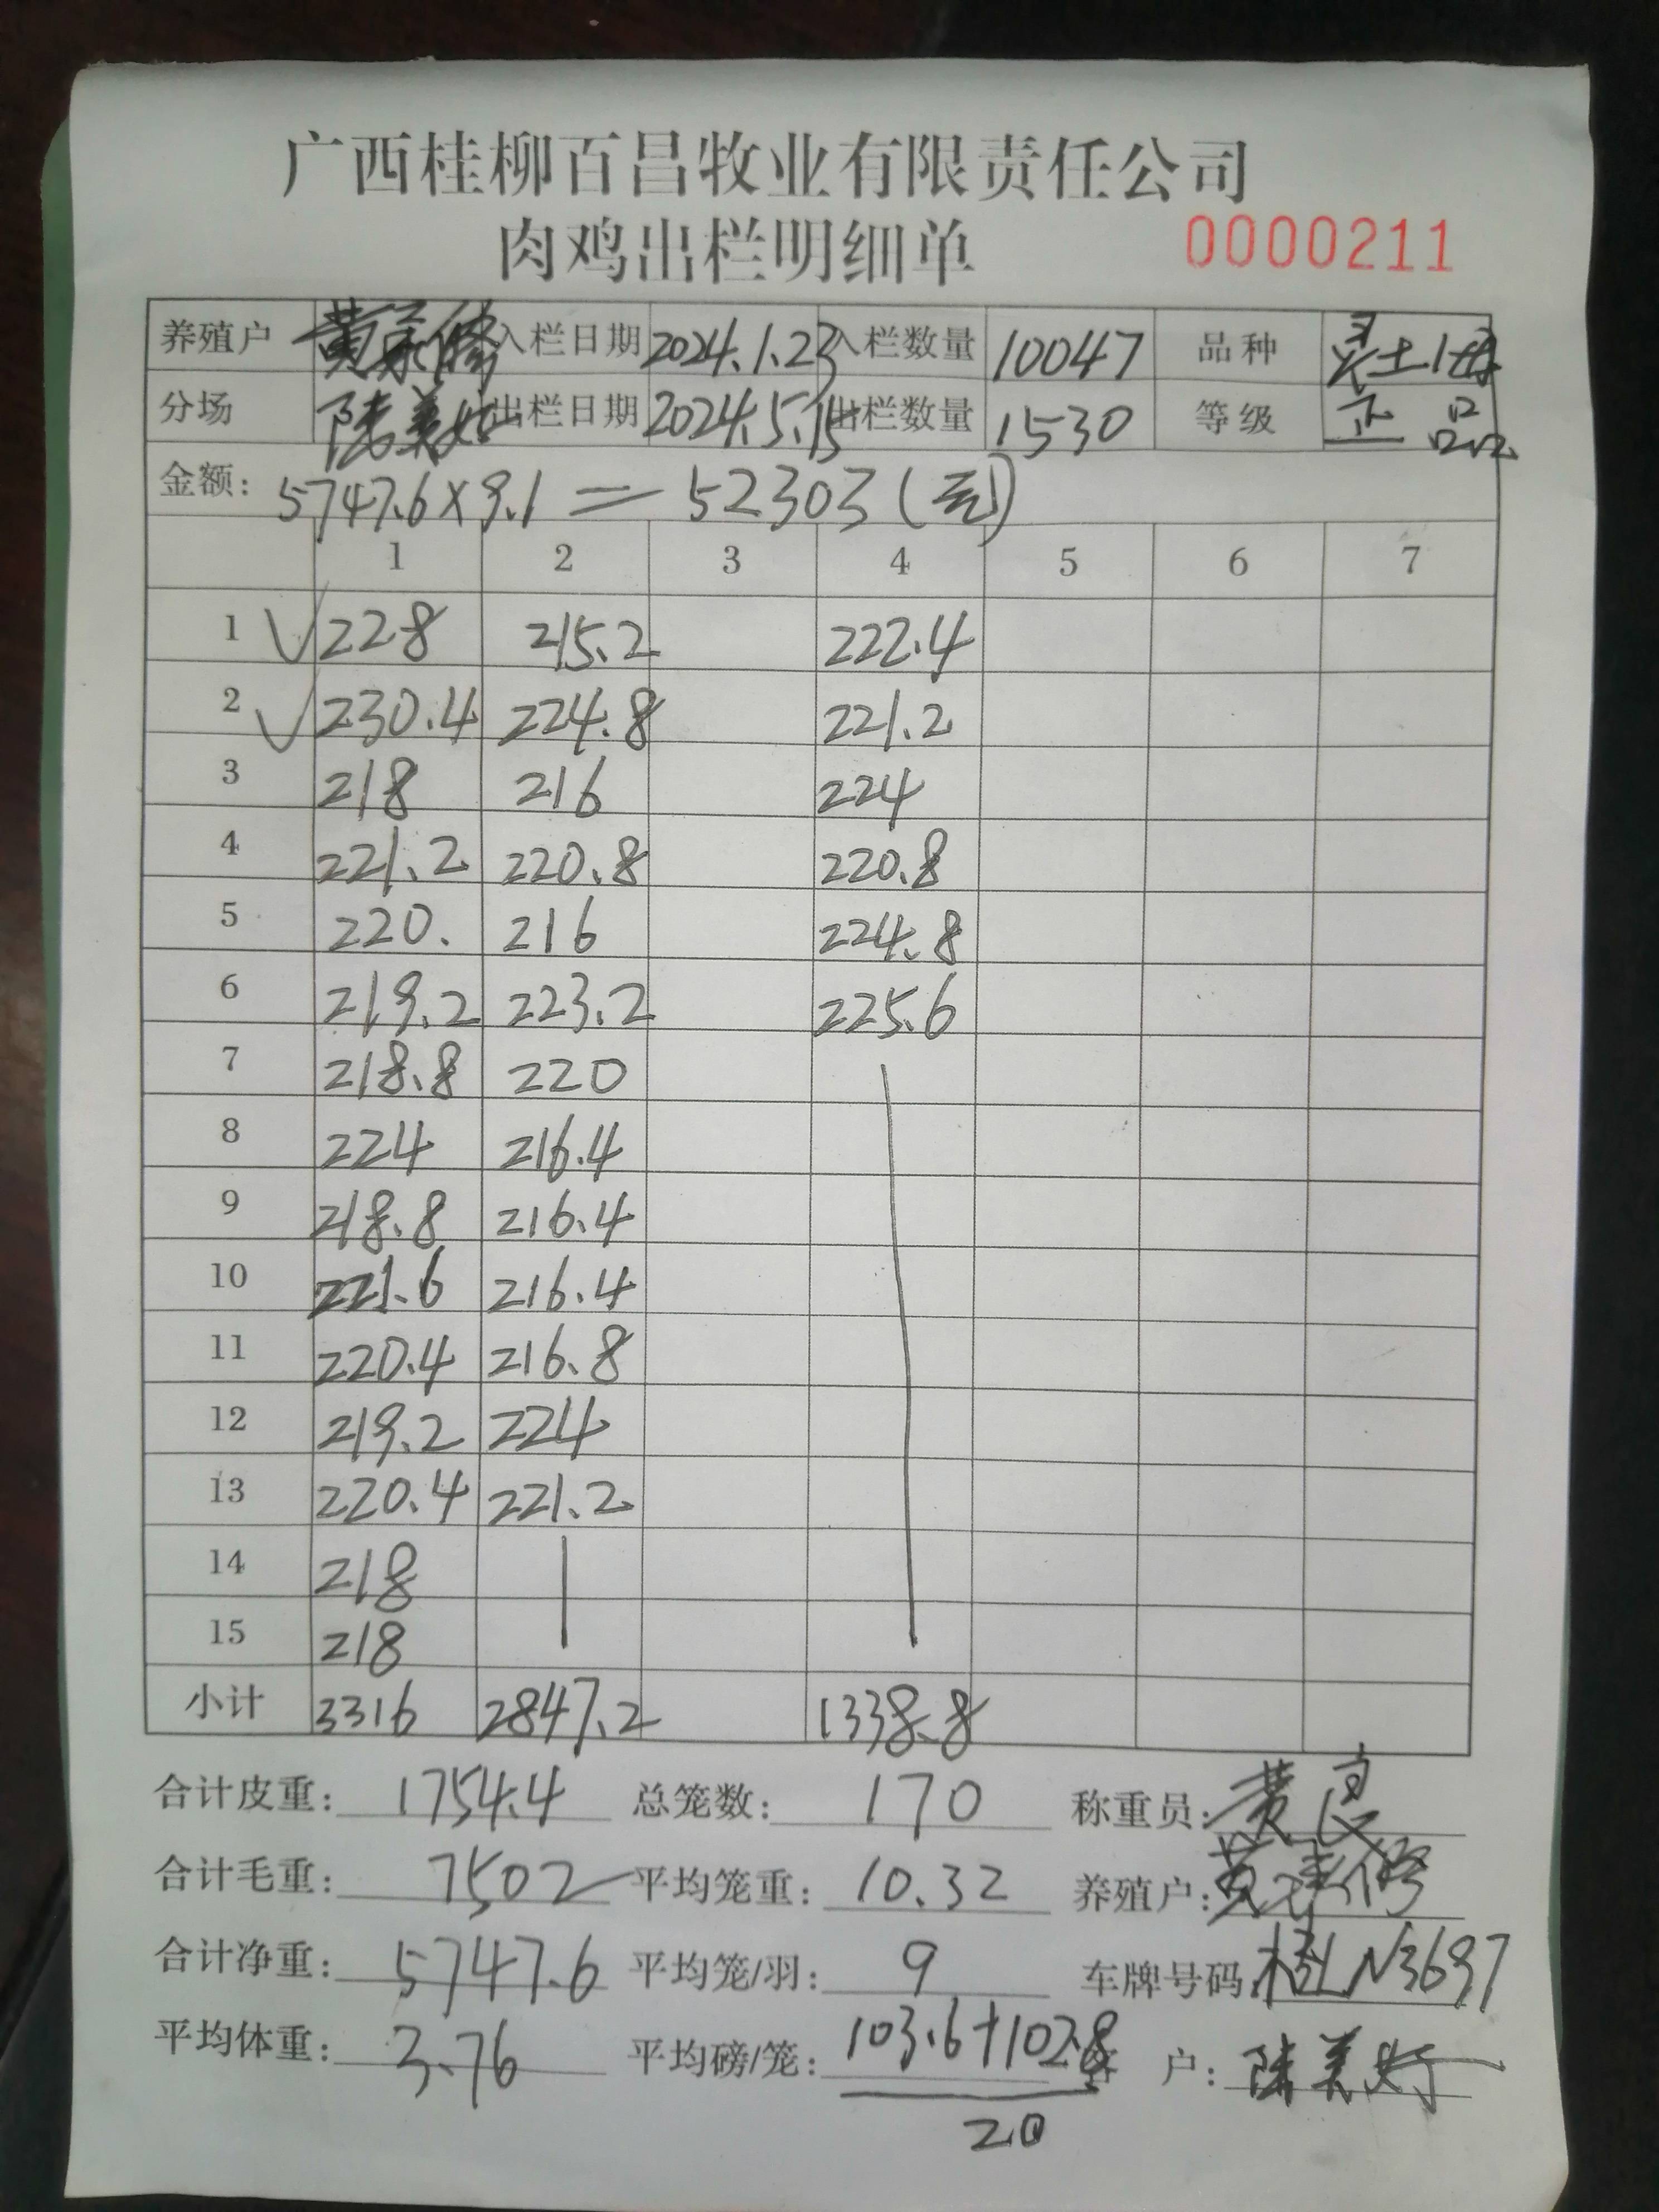 广西桂柳百昌牧业有限责任公司
肉鸡出栏明细单 0000211
养殖户 入栏日期 2024.1.23 入栏数量 10047 品种 土
分场 陆美好 出栏日期 2024.5.15 出栏数量 1530 等级 正品
金额: 5747.6×9.1=52303(元)
1 2 3 4 5 6 7
1 √ 228 215.2 222.4
2 √ 230.4 224.8 221.2
3 218 216 224
4 221.2 220.8 220.8
5 220. 216 224.8
6 219.2 223.2 225.6
7 218.8 220
8 224 216.4
9 218.8 216.4
10 221.6 216.4
11 220.4 216.8
12 219.2 224
13 220.4 221.2
14 218
15 218
小计 3316 2847.2 1338.8
合计皮重: 1754.4 总笼数: 170 称重员: 黄
合计毛重: 7502 平均笼重: 10.32 养殖户: 黄
合计净重: 5747.6 平均笼/羽: 9 车牌号码: 桂LN3697
平均体重: 3.76 平均磅/笼: 103.6+102.8 客户: 陆美好
20